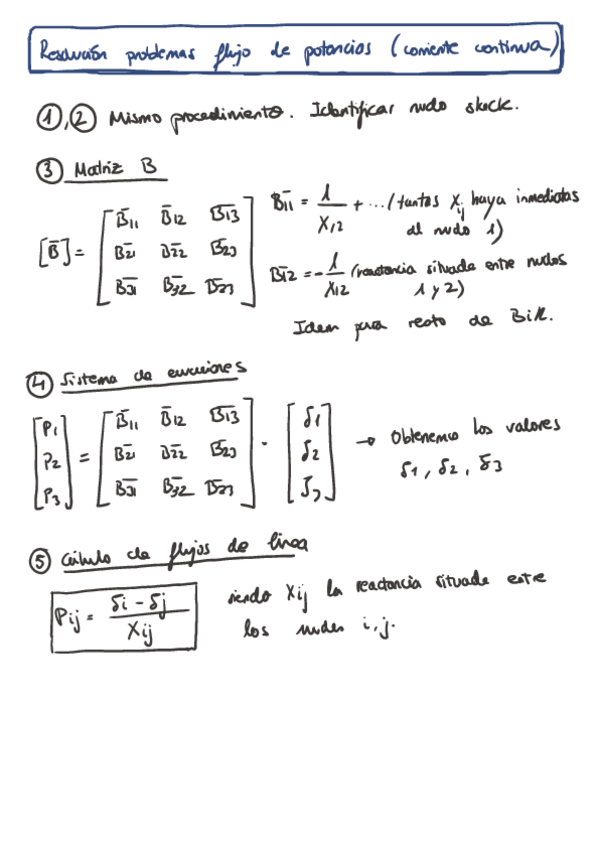 Resolución problemas flujo de potencias (corriente continua)
①,② Mismo procedimiento. Identificar nudo slack.
③ Matriz B
[B̄] = [B̄11 B̄12 B̄13
B̄21 B̄22 B̄23
B̄31 B̄32 B̄33]
B̄11 = 1/X12 + ... (tantas Xij haya inmediatas
al nudo 1)
B̄12 = - 1/X12 (reactancia situada entre nudos
1 y 2)
Idem para resto de Bik.
④ Sistema de ecuaciones
[P1 P2 P3] = [B̄11 B̄12 B̄13
B̄21 B̄22 B̄23
B̄31 B̄32 B̄33] · [δ1 δ2 δ3] → Obtenemos los valores
δ1, δ2, δ3
⑤ Cálculo de flujos de línea
Pij = (δi - δj)/Xij siendo Xij la reactancia situada entre
los nudos i,j.